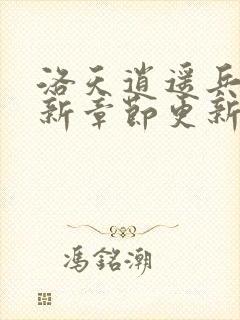 洛天逍遥兵
新章節更新
馮銘潮